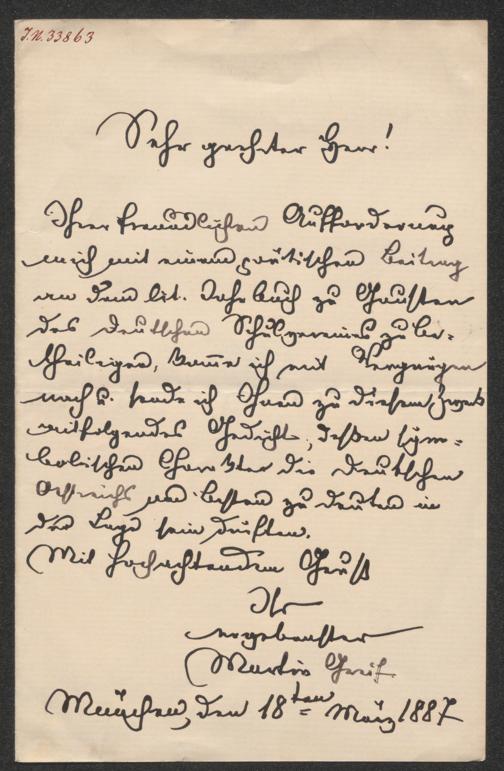 J.N. 33863
Sehr geehrter Herr!
Ihrer freundlichen Aufforderung
mich mit einem poetischen Beitrag
an dem lit. Jahrbuch zu Gunsten
des deutschen Schulvereines zu be-
theiligen, komme ich mit Vergnügen
nach u. sende ich Ihnen zu diesem Zweck
mitfolgendes Gedicht, dessen sym-
bolischen Charakter die Deutschen
Oestreichs am besten zu deuten in
der Lage sein dürften.
Mit hochachtendem Gruß
Ihr
ergebenster
Martin Greif
München, den 18ten März 1887